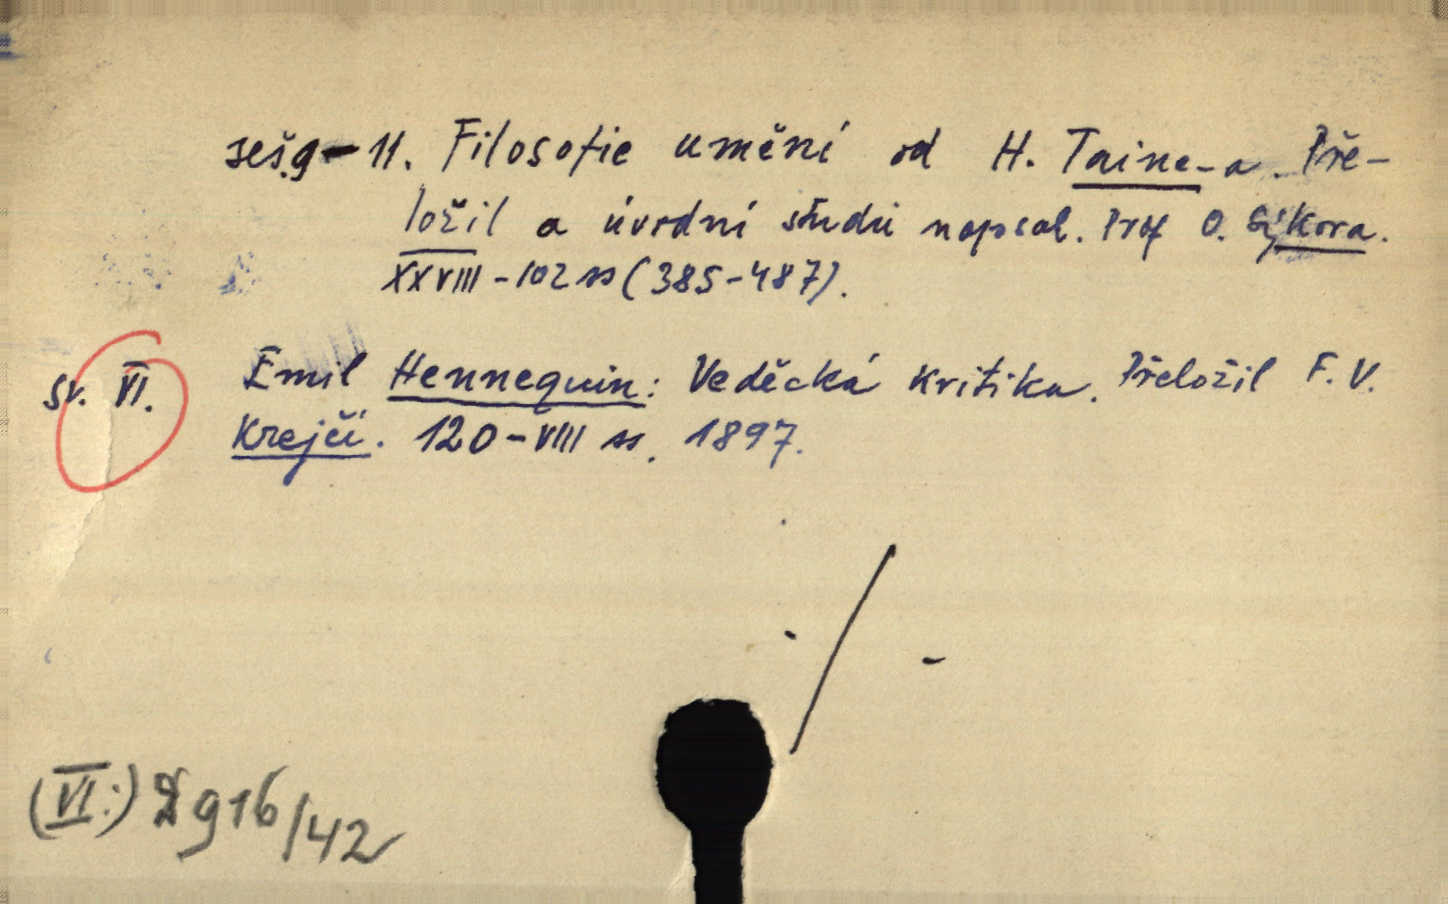 seš.9-11. Filosofie umění od H. Taine-a. Pře-
ložil a úvodní studii napsal. Prof O. Sýkora.
XXVIII-102 ss (385-487).
sv. VI. Emil Hennequin: Veděcká kritika. Přeložil F.V.
Krejčí. 120-VIII ss. 1897.
(VI:) 916/42